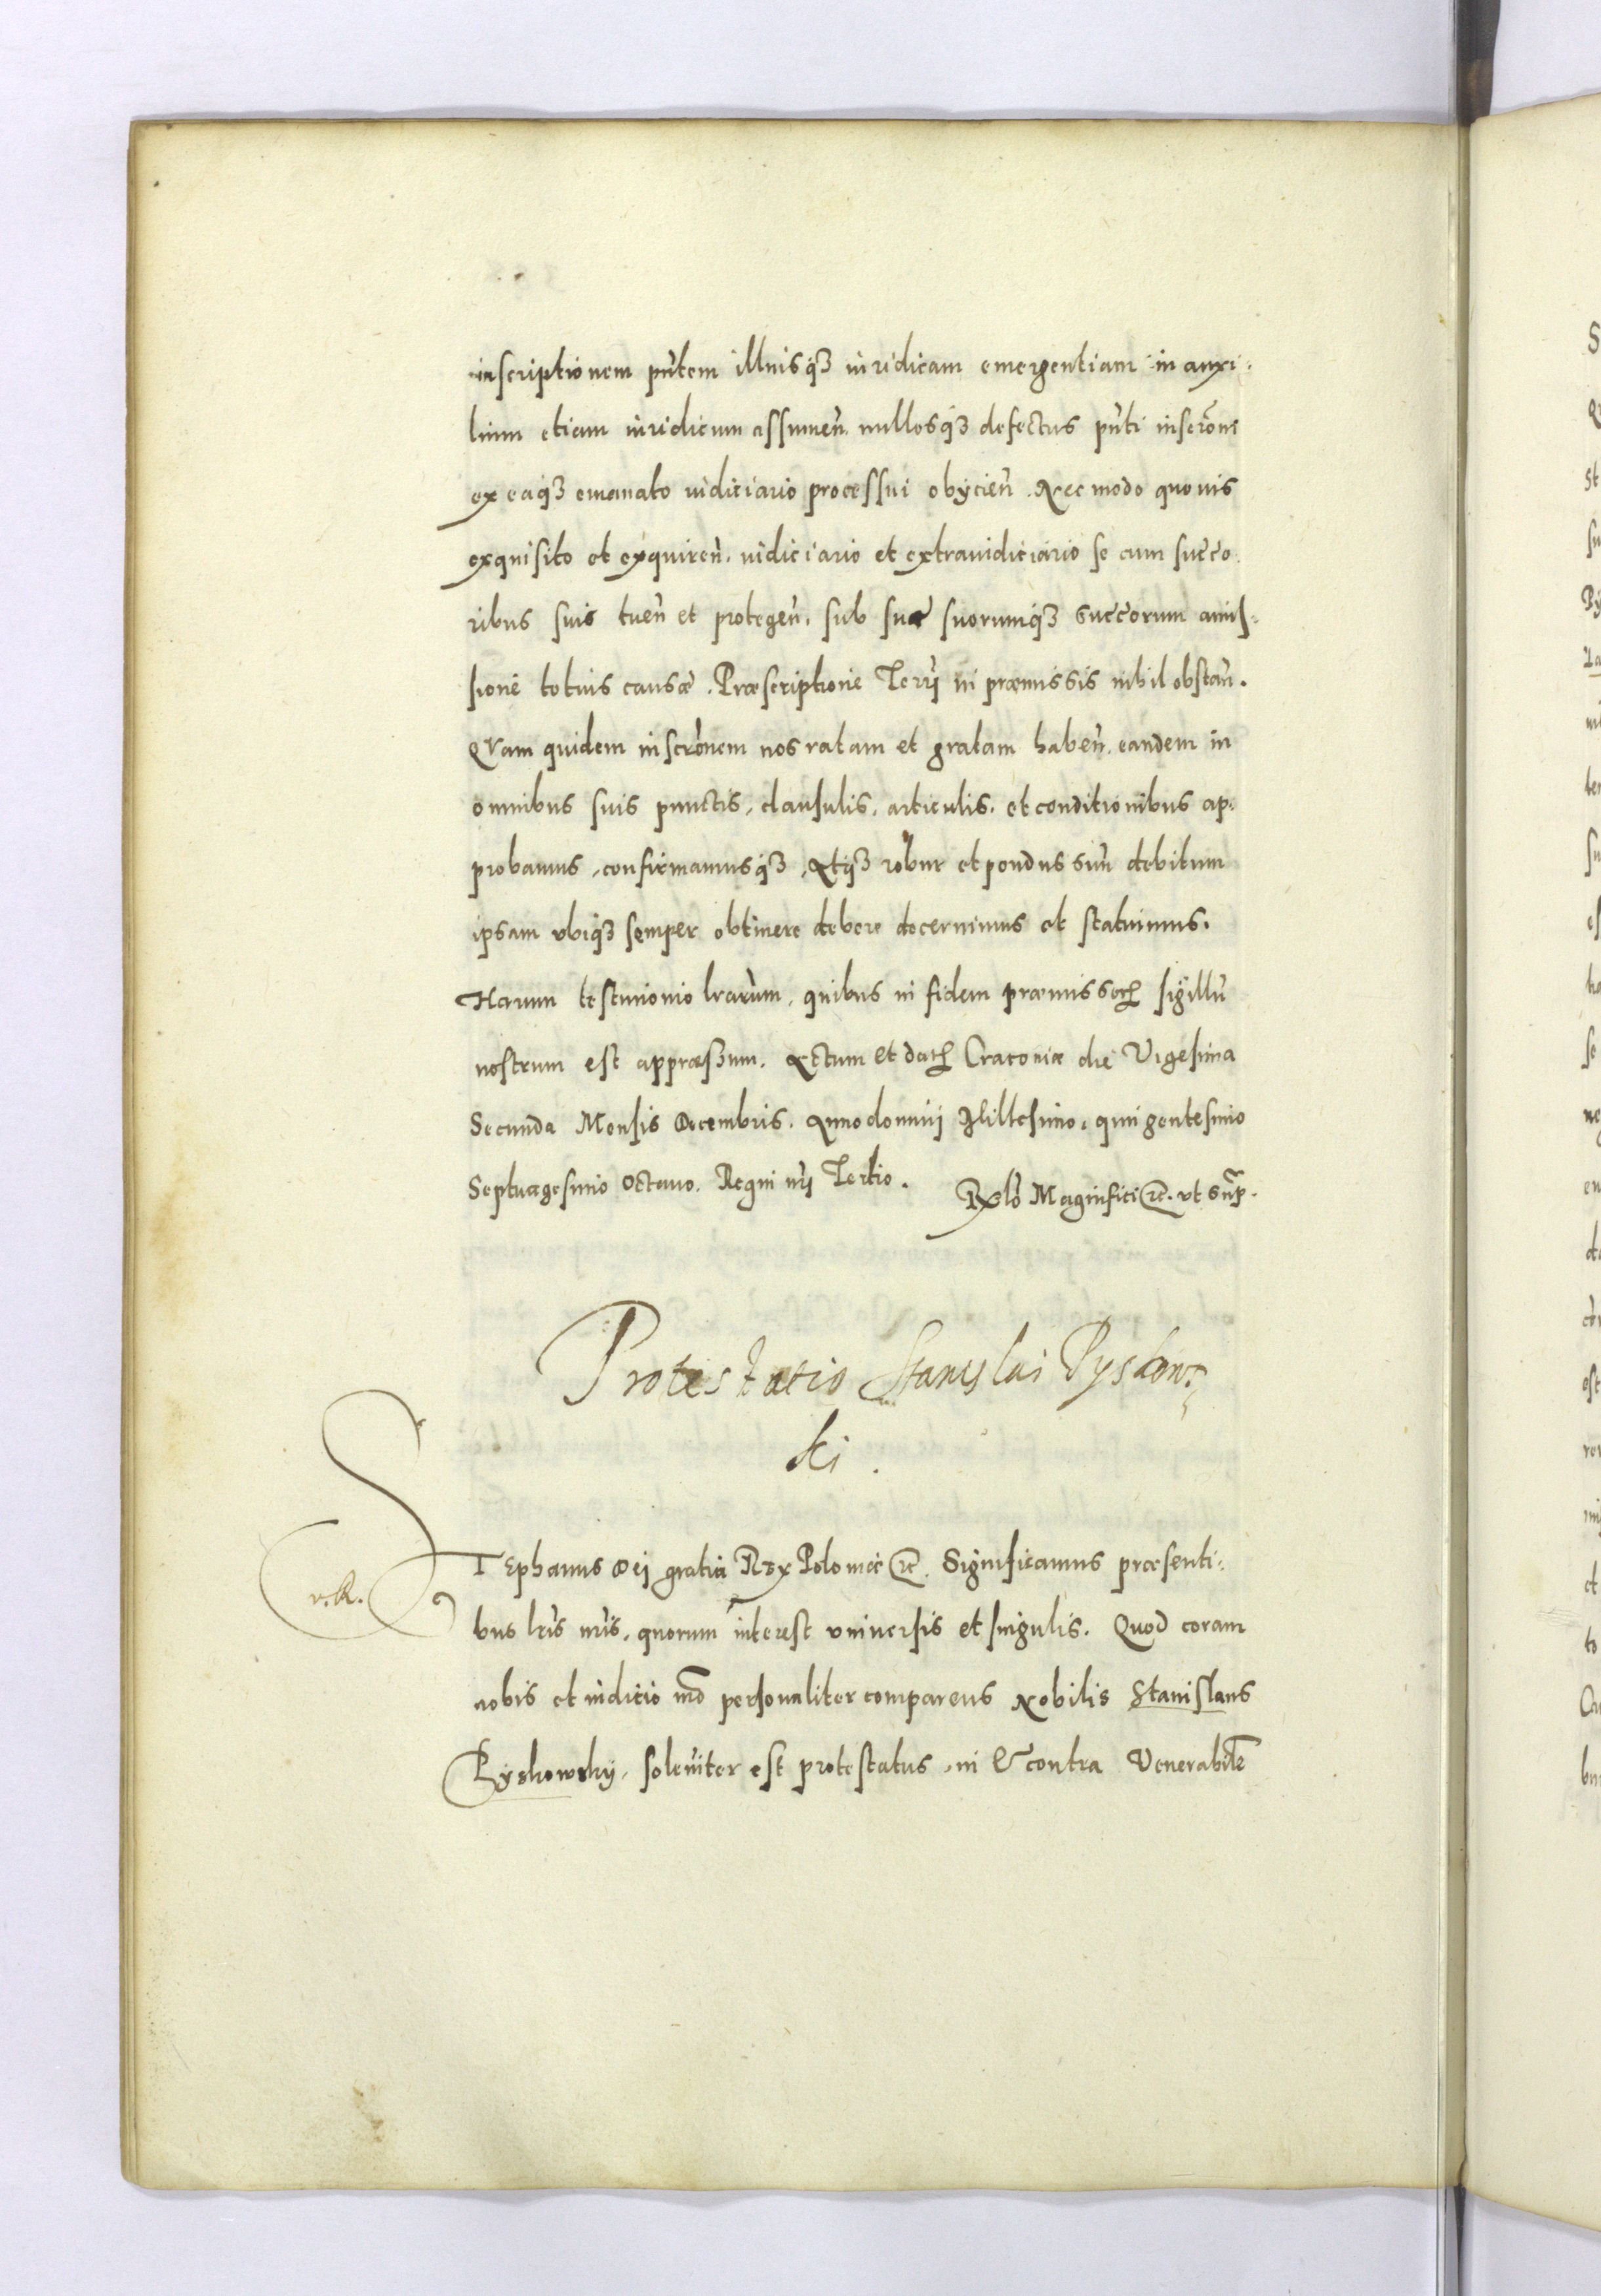 inscriptionem pntem illiusq3 iuridicam emergentiam in auxi-
lium etiam iuridicum assumen. nullosq3 defectus pnti inscroni
ex eaq3 emanato iudiciario processui obycien. Nec modo quovis
exquisito et exquiren. iudiciario et extraiudiciario se cum succo
ribus suis tuen et protegen. sub suae suorumq3 succorum amis-
sione totius causæ. Præscriptione Terrj in præmissis nihil obstan.
QVam quidem inscronem nos ratam et gratam haben. eandem in
omnibus suis punctis, clausulis, articulis, et conditionibus ap-
probamus, confirmamusq3, Atq3 robur et pondus suu debitum
ipsam vbiq3 semper obtinere debere decernimus et statuimus.
Harum testimonio lrarum, quibus in fidem præmissor sigillu
nostrum est appræssum. Actum et dat Cracoviæ die Vigesima
Secunda Mensis Decembris. Anno dominij Millesimo, quingentesimo
Septuagesimo Octavo. Regni nrj Tertio. Rxlo Magnifici etc. vt sup.
Protestatio Stanislai Pyskow-
ski.
STEphanus Dei gratia Rex Poloniæ etc. Significamus præsenti-
v. R.
bus lris nris, quorum interest vniversis et singulis. Quod coram
nobis et iudicio nro personaliter comparens Nobilis Stanislaus
Pyskowsky, soleniter est protestatus, in & contra Venerabile